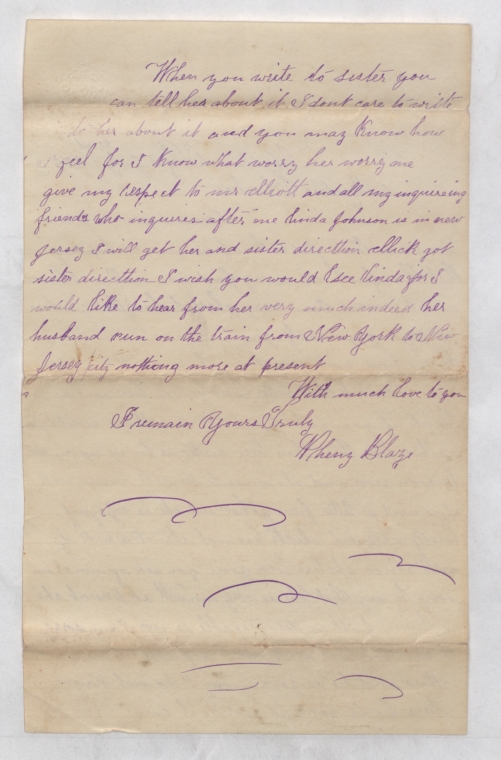 When you write to sister you
can tell her about it I dont care to write
to her about it and you may Know how
I feel for I Know what worry her worry me
give my respect to mr elliott and all my inquireing
friends who inquires after me linda Johnson is in new
Jersey I will get her and sister directtion got
sister directtion I wish you would see linda for I
would like to hear from her very much indeed her
husband run on the train from New York to New
Jersey city nothing more at present
With much love to you
I remain Yours Truly